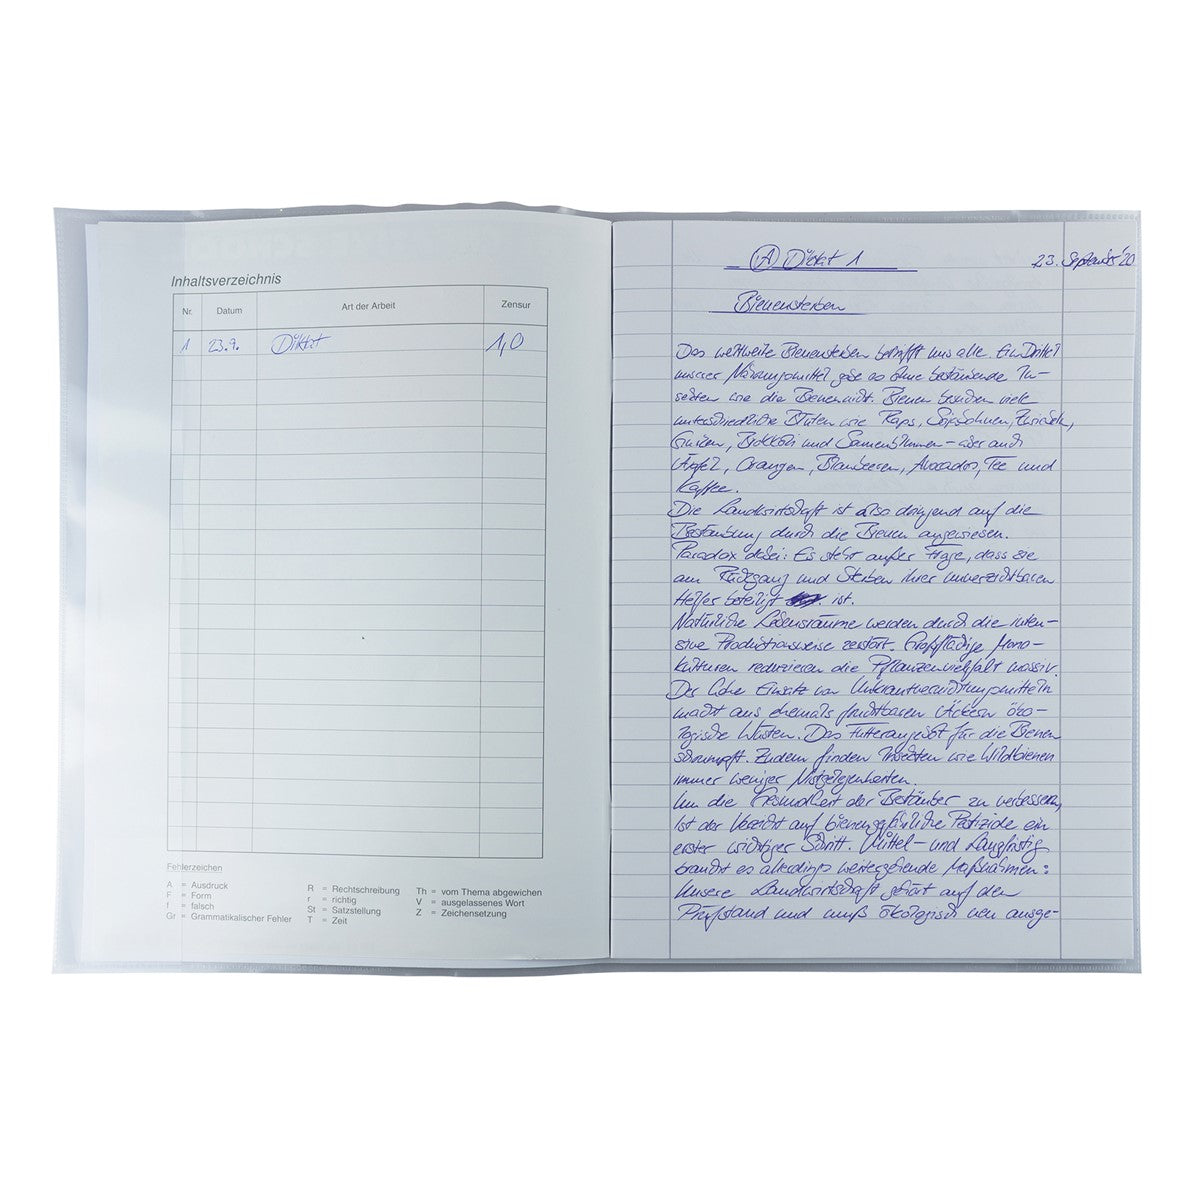 Inhaltsverzeichnis
Nr. Datum Art der Arbeit Zensur
1 23.9. Diktat 1,0
Fehlerzeichen
A = Ausdruck
F = Form
f = falsch
Gr = Grammatikalischer Fehler
R = Rechtschreibung
r = richtig
St = Satzstellung
T = Zeit
Th = vom Thema abgewichen
V = ausgelassenes Wort
Z = Zeichensetzung
A Diktat 1 23. September '20
Bienensterben
Das weltweite Bienensterben betrifft uns alle. Ein Drittel
unserer Nahrungsmittel gäbe es ohne bestäubende In-
sekten wie die Biene nicht. Bienen besuchen viele
unterschiedliche Blüten wie Raps, Sojabohnen, Zwiebeln,
Gurken, Brokkoli und Sonnenblumen - aber auch
Äpfel, Orangen, Blaubeeren, Avocados, Tee und
Kaffee.
Die Landwirtschaft ist also dringend auf die
Bestäubung durch die Bienen angewiesen.
Paradox dabei: Es steht außer Frage, dass sie
am Rückgang und Sterben ihrer unverzichtbaren
Helfer beteiligt ist.
Natürliche Lebensräume werden durch die inten-
sive Produktionsweise zerstört. Großflächige Mono-
kulturen reduzieren die Pflanzenvielfalt massiv.
Der hohe Einsatz von Unkrautvernichtungsmitteln
macht aus ehemals fruchtbaren Äckern öko-
logische Wüsten. Das Futterangebot für die Bienen
schrumpft. Zudem finden Insekten wie Wildbienen
immer weniger Nistgelegenheiten.
Um die Gesundheit der Bestäuber zu verbessern,
ist der Verzicht auf bienengefährliche Pestizide ein
erster wichtiger Schritt. Mittel- und Langfristig
braucht es allerdings weitergehende Maßnahmen:
Unsere Landwirtschaft gehört auf den
Prüfstand und muß ökologisch neu ausge-